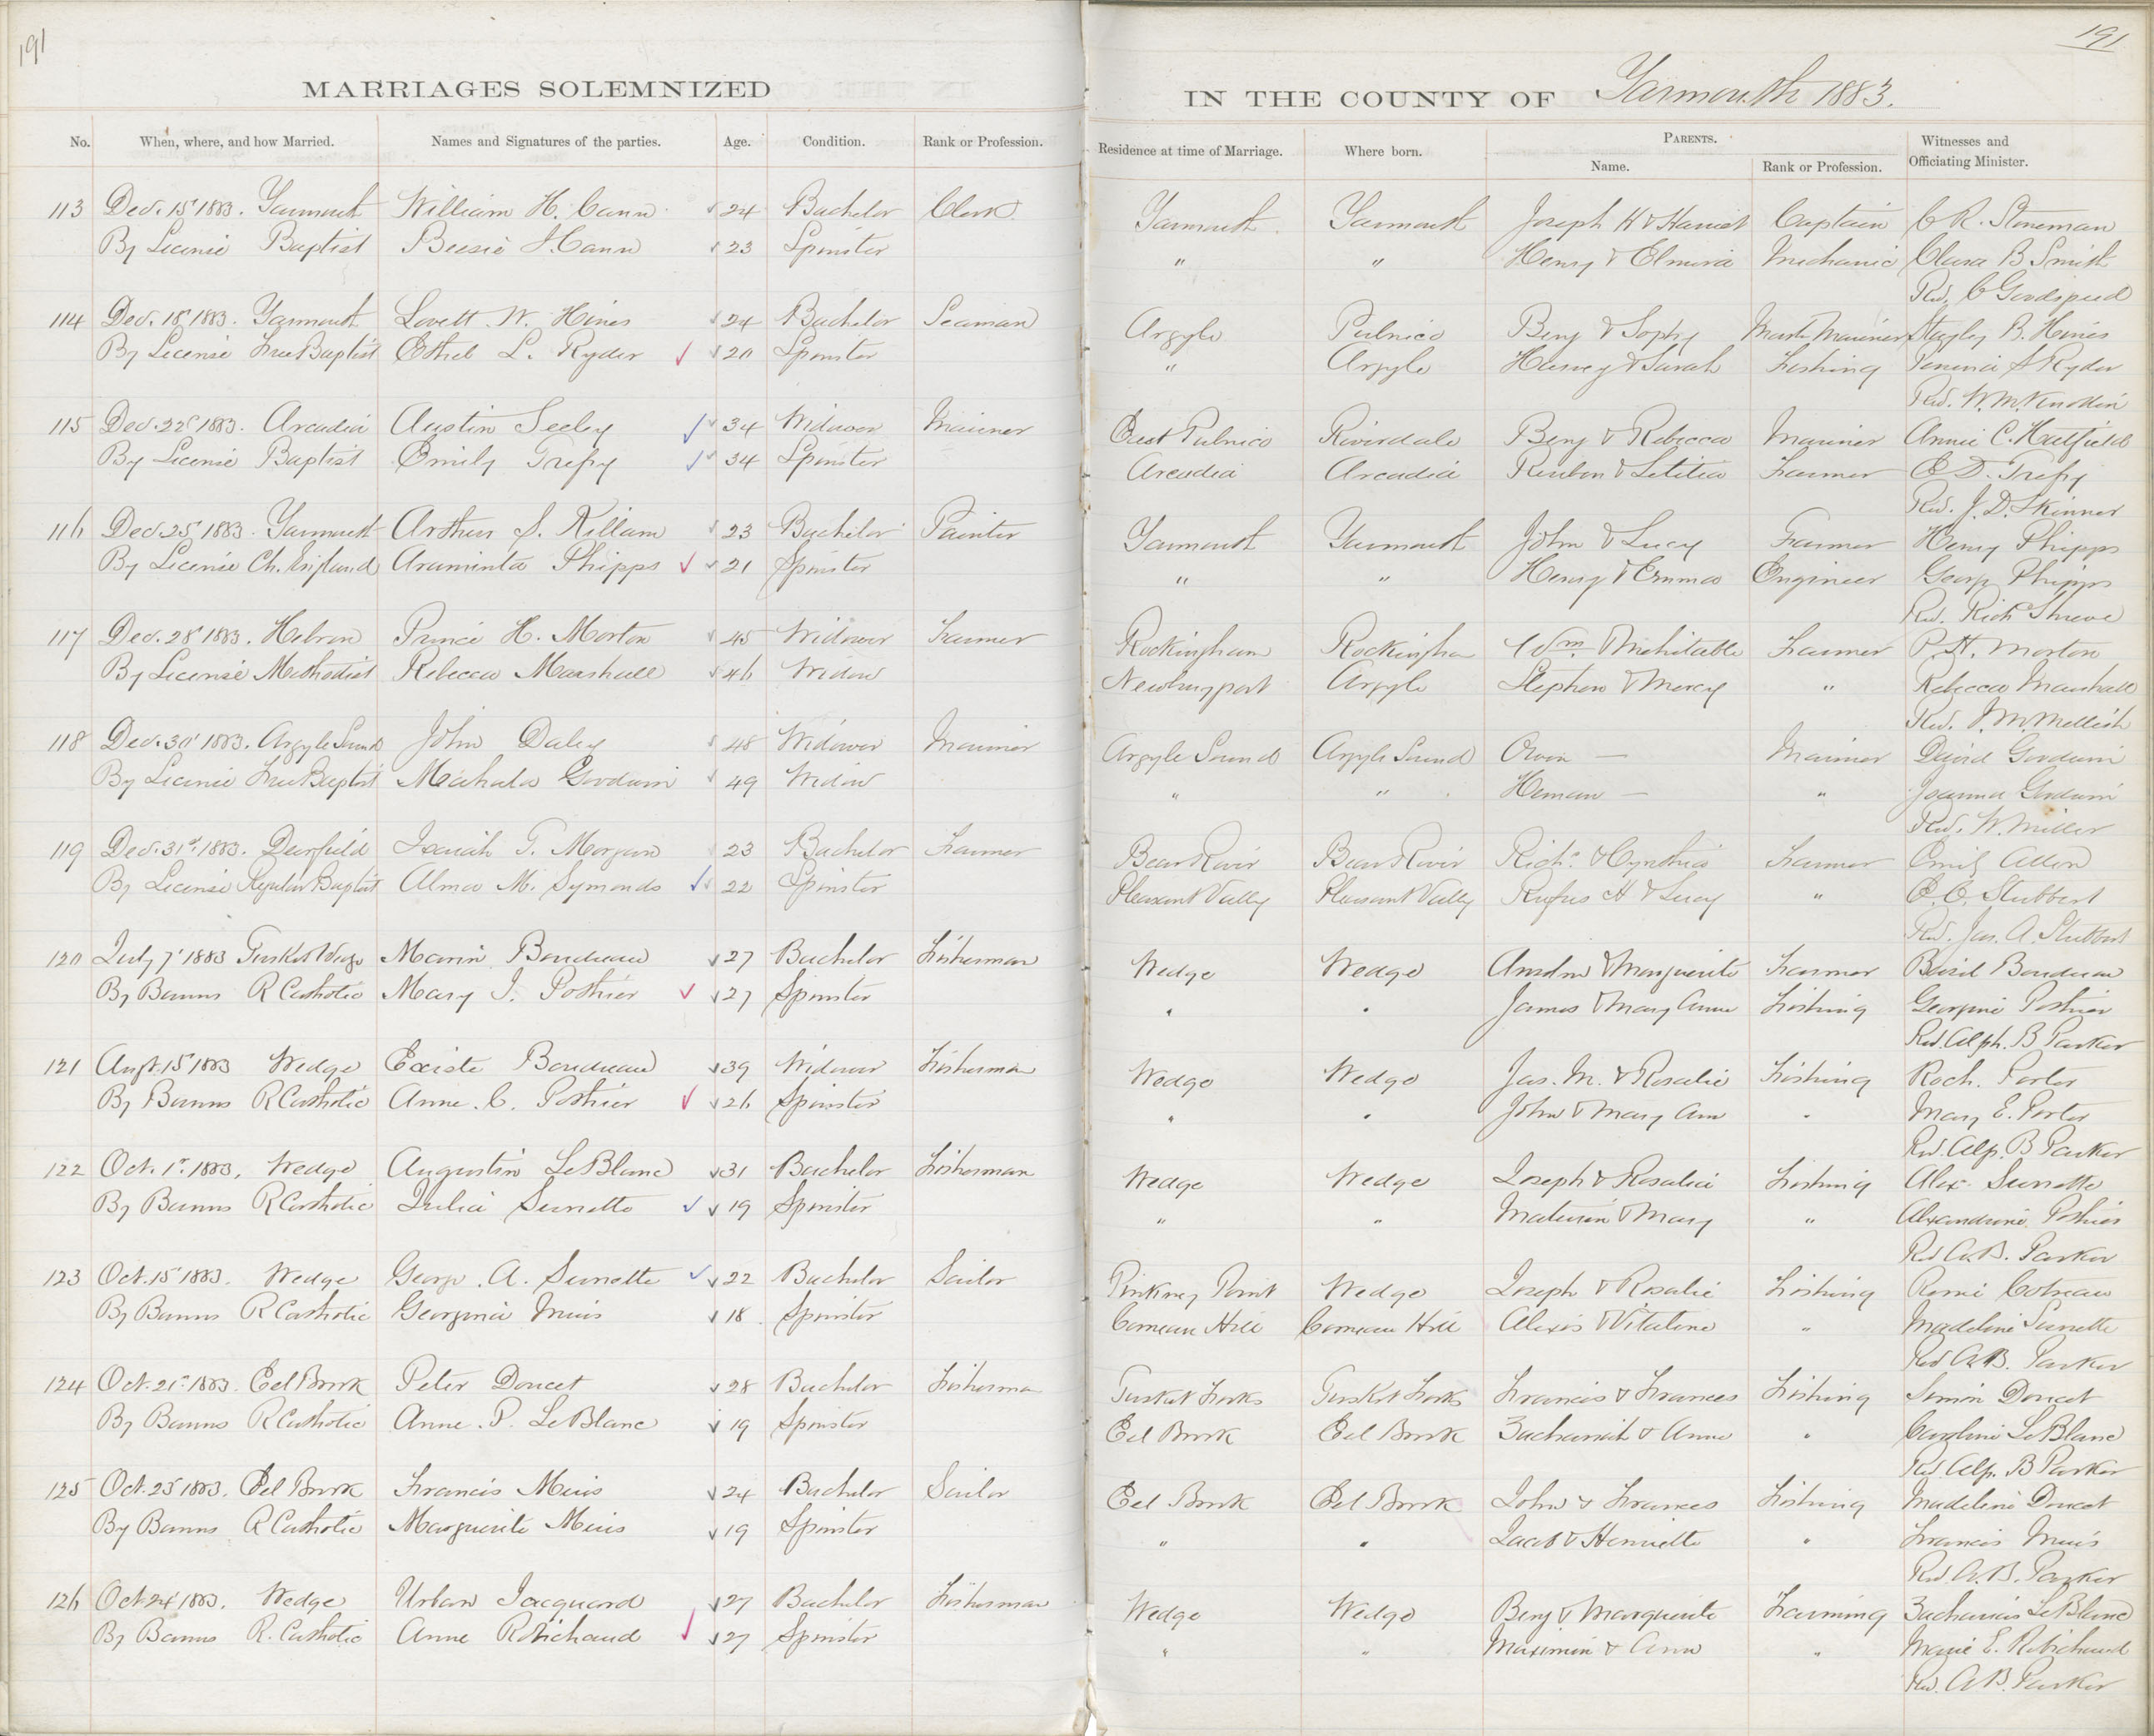 191
MARRIAGES SOLEMNIZED
No. When, where, and how Married. Names and Signatures of the parties. Age. Condition. Rank or Profession.
113 Dec. 15 1883. Yarmouth William H. Cann 24 Bachelor Clerk
By License Baptist Bessie H. Cann 23 Spinster
114 Dec. 18 1883. Yarmouth Lovett W. Hines 24 Bachelor Seaman
By License Free Baptist Ethel L. Ryder 20 Spinster
115 Dec. 22 1883. Arcadia Austin Seeley 34 Widower Mariner
By License Baptist Emily Trefry 34 Spinster
116 Dec. 25 1883. Yarmouth Arthur S. Killam 23 Bachelor Painter
By License Ch. England Araminta Phipps 21 Spinster
117 Dec. 28 1883. Hebron Prince H. Morton 45 Widower Farmer
By License Methodist Rebecca Marshall 46 Widow
118 Dec. 30 1883. Argyle Sound John Daley 48 Widower Mariner
By License Free Baptist Mahala Goodwin 49 Widow
119 Dec. 31st 1883. Deerfield Isaiah T. Morgan 23 Bachelor Farmer
By License Regular Baptist Alma M. Symonds 22 Spinster
120 July 7 1883 Tusket Wedge Marin Boudreau 27 Bachelor Fisherman
By Banns R Catholic Mary J. Pothier 27 Spinster
121 Augt. 15 1883 Wedge Existe Boudreau 39 Widower Fisherman
By Banns R Catholic Anne. C. Pothier 26 Spinster
122 Oct. 1st 1883. Wedge Augustin LeBlanc 31 Bachelor Fisherman
By Banns R Catholic Julia Surrette 19 Spinster
123 Oct. 15 1883. Wedge George. A. Surrette 22 Bachelor Sailor
By Banns R Catholic Georgina Muis 18 Spinster
124 Oct. 21st 1883. Eel Brook Peter Doucet 28 Bachelor Fisherman
By Banns R Catholic Anne. P. LeBlanc 19 Spinster
125 Oct. 23 1883. Eel Brook Francis Muis 24 Bachelor Sailor
By Banns R Catholic Marguerite Muis 19 Spinster
126 Oct. 24 1883. Wedge Urban Jacquard 27 Bachelor Fisherman
By Banns R. Catholic Anne Robichaud 27 Spinster
191
IN THE COUNTY OF Yarmouth 1883.
Residence at time of Marriage. Where born. PARENTS. Name. Rank or Profession. Witnesses and Officiating Minister.
Yarmouth Yarmouth Joseph H & Harriet Captain C. R. Stoneman
" " Henry & Elmira Mechanic Clara B Smith
Rev. C Goodspeed
Argyle Pubnico Benj & Sophy Master Mariner Stayley B. Hines
" Argyle Harvey & Sarah Fishing S Ryder
Rev. W. M. Knollin
East Pubnico Riverdale Benj & Rebecca Mariner Annie C. Hatfield
Arcadia Arcadia Reuben & Letitia Farmer E D. Trefry
Rev. J. D. Skinner
Yarmouth Yarmouth John & Lucy Farmer Henry Phipps
" " Henry & Emma Engineer George Phipps
Rev. Rich Shreve
Rockingham Rockingham Wm. & Mehitable Farmer P. H. Morton
Newburyport Argyle Stephen & Mercy " Rebecca Marshall
Rev. J. M. Mellish
Argyle Sound Argyle Sound Owen — Mariner David Goodwin
" " Heman — " Joanna Goodwin
Rev. W. Miller
Bear River Bear River Richd. & Cynthia Farmer Emily Allen
Pleasant Vally Pleasant Vally Rufus H & Lucy " E. C. Stubbert
Rev. Jas. A. Stubbert
Wedge Wedge Anselm & Marguerite Farmer Basil Boudreau
" " James & Mary Anne Fishing Georgine Pothier
Rev. Alph. B Parker
Wedge Wedge Jas. M. & Rosalie Fishing Roch. Porter
" " John & Mary Ann " Mary E. Porter
Rev. Alp. B Parker
Wedge Wedge Joseph & Rosalie Fishing Alex. Surrette
" " Maturin & Mary " Alexandrine Pothier
Rev A. B. Parker
Pinkney Point Wedge Joseph & Rosalie Fishing Remi Cotreau
Comeau Hill Comeau Hill Alexis & Vitaline " Madeline Surrette
Rev A. B. Parker
Tusket Forks Tusket Forks Francis & Frances Fishing Simon Doucet
Eel Brook Eel Brook Zachariah & Anne " Caroline LeBlanc
Rev Alp. B Parker
Eel Brook Eel Brook John & Frances Fishing Madeline Doucet
" " Jacob & Henriette " Francis Muis
Rev. A. B. Parker
Wedge Wedge Benj & Marguerite Farming Zacharias LeBlanc
" " Maximin & Ann " Marie E. Robichaud
Rev. A. B. Parker